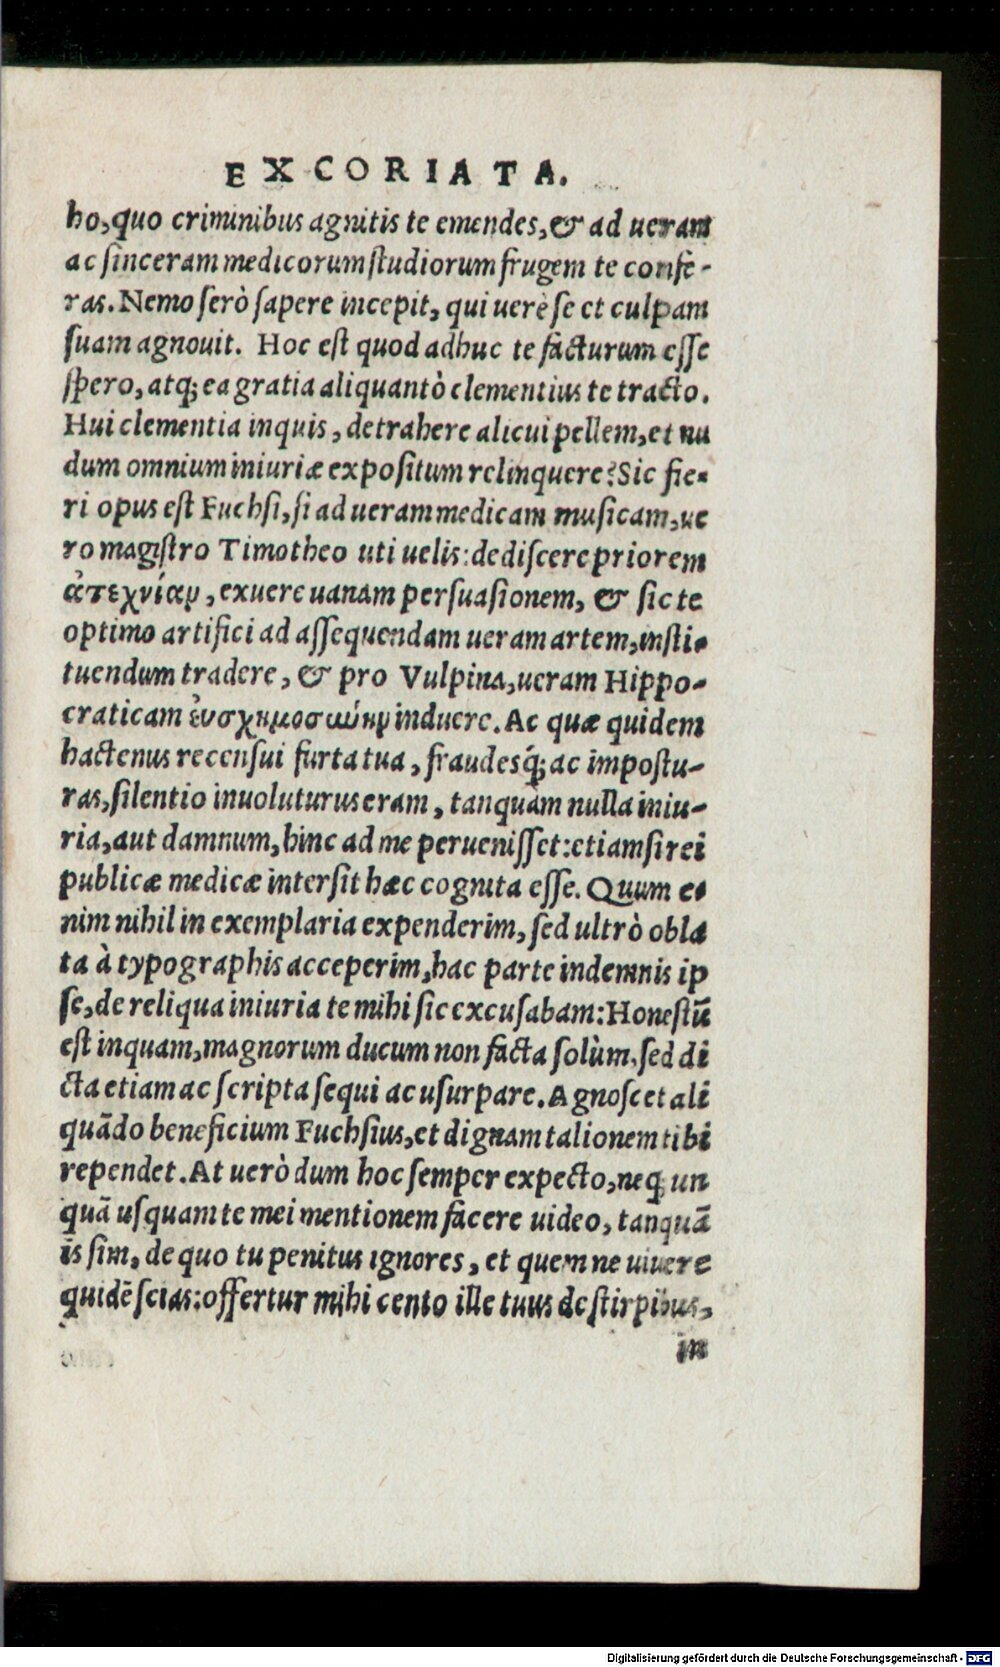 EXCORIATA.
ho, quo criminibus agnitis te emendes, & ad ueram
ac sinceram medicorum studiorum frugem te confe-
ras. Nemo serò sapere incepit, qui uerè se et culpam
suam agnouit. Hoc est quod adhuc te facturum esse
spero, atq; ea gratia aliquantò clementius te tracto.
Hui clementia inquis, detrahere alicui pellem, et nu
dum omnium iniuriæ expositum relinquere? Sic fie-
ri opus est Fuchsi, si ad ueram medicam musicam, ue
ro magistro Timotheo uti uelis: dediscere priorem
ἀτεχνίαν, exuere uanam persuasionem, & sic te
optimo artifici ad assequendam ueram artem, insti-
tuendum tradere, & pro Vulpina, ueram Hippo-
craticam ἐυσχημοσωύην induere. Ac quæ quidem
hactenus recensui furta tua, fraudesq́; ac impostu-
ras, silentio inuoluturus eram, tanquàm nulla iniu-
ria, aut damnum, hinc ad me peruenisset: etiamsi rei
publicæ medicæ intersit hæc cognita esse. Quum e-
nim nihil in exemplaria expenderim, sed ultrò obla
ta à typographis acceperim, hac parte indemnis ip
se, de reliqua iniuria te mihi sic excusabam: Honestũ
est inquam, magnorum ducum non facta solùm, sed di
cta etiam ac scripta sequi ac usurpare. Agnoscet ali
quãdo beneficium Fuchsius, et dignam talionem tibi
rependet. At uerò dum hoc semper expecto, neq; un
quã usquam te mei mentionem facere uideo, tanquã
is sim, de quo tu penitus ignores, et quem ne uiuere
quidẽ scias: offertur mihi cento ille tuus de stirpibus,
in
Digitalisierung gefördert durch die Deutsche Forschungsgemeinschaft - DFG